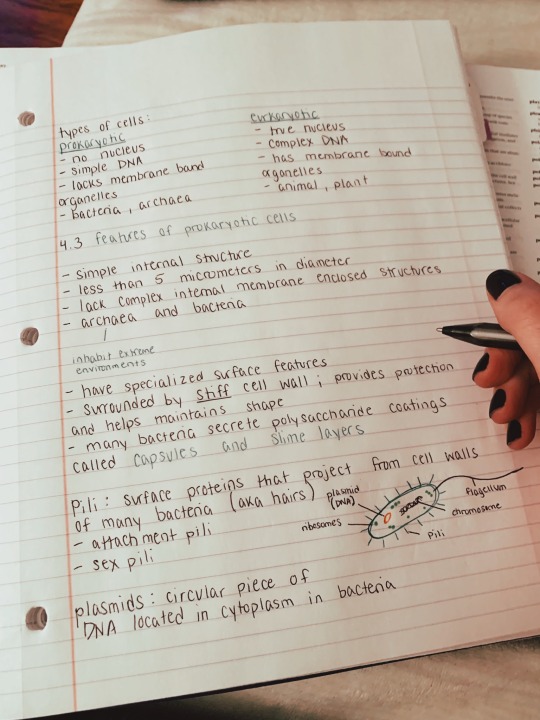 types of cells:
prokaryotic
- no nucleus
- simple DNA
- lacks membrane band
organelles
- bacteria, archaea
eukaryotic
- true nucleus
- complex DNA
- has membrane bound
organelles
- animal, plant
4.3 features of prokaryotic cells
- simple internal structure
- less than 5 micrometers in diameter
- lack complex internal membrane enclosed structures
- archaea and bacteria
inhabit extreme
environments
- have specialized surface features
- surrounded by stiff cell wall; provides protection
and helps maintain shape
- many bacteria secrete polysaccharide coatings
called capsules and slime layers
Pili: surface proteins that project from cell walls
of many bacteria (aka hairs)
- attachment pili
- sex pili
plasmid
(DNA)
ribosomes
flagellum
chromosome
pili
plasmids: circular piece of
DNA located in cytoplasm in bacteria